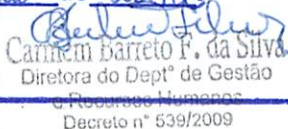 Carmem Barreto F. da Silva
Diretora do Dept° de Gestão
e Recursos Humanos
Decreto n° 539/2009